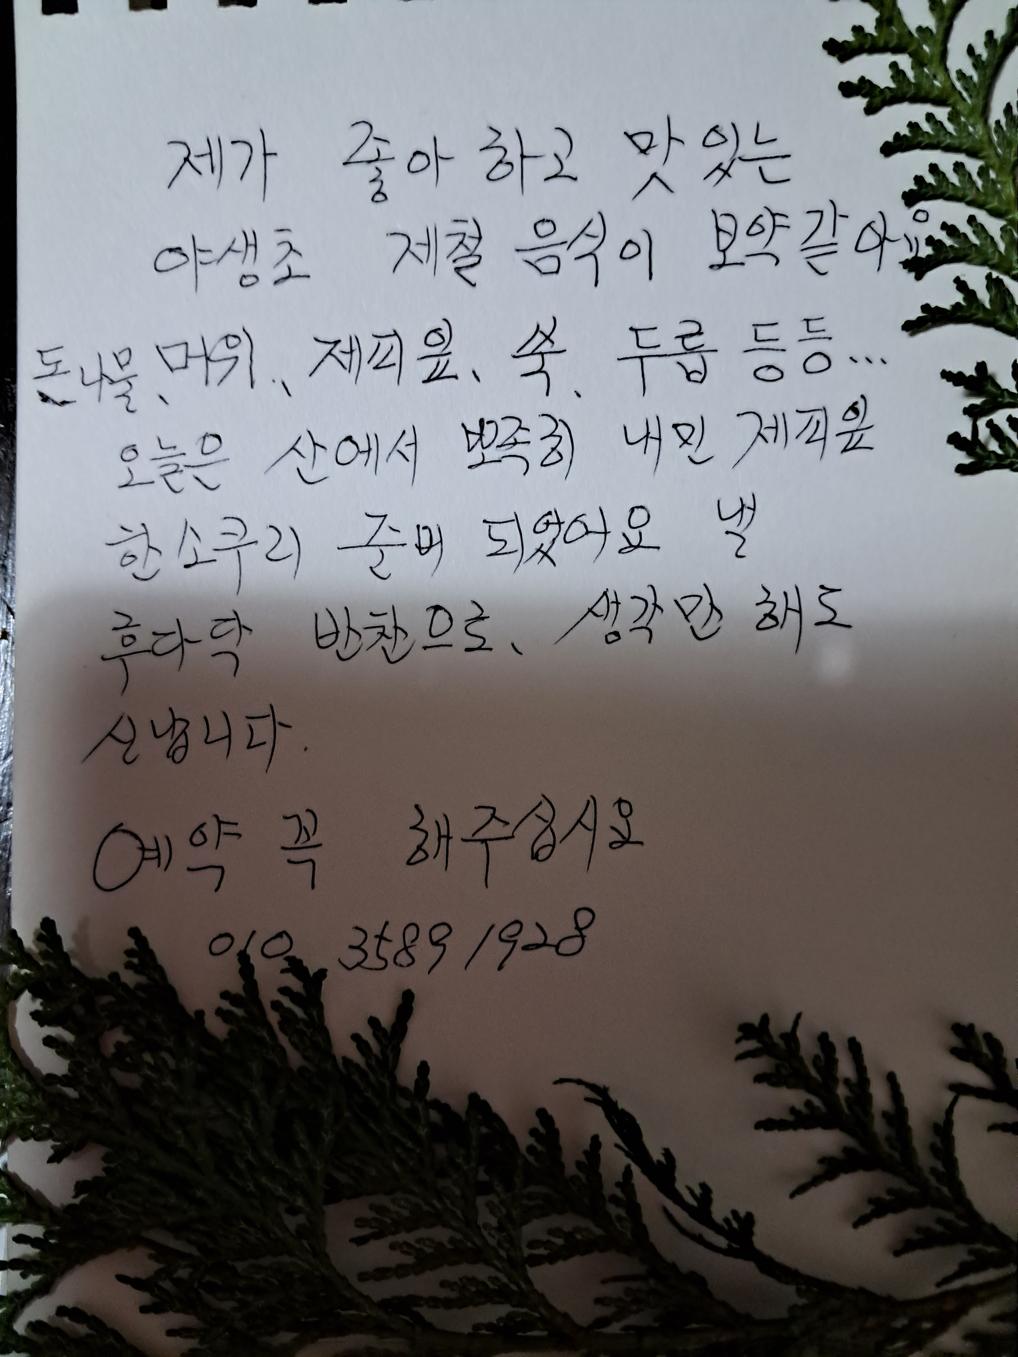 제가 좋아 하고 맛있는
야생초 제철 음식이 보약같아요
돈나물、머위、제피잎、쑥、두릅 등등...
오늘은 산에서 뾰족히 내민 제피잎
한소쿠리 준비 되었어요 낼
후다닥 반찬으로、생각만 해도
신납니다.
예약 꼭 해주십시요
010 3589 1928